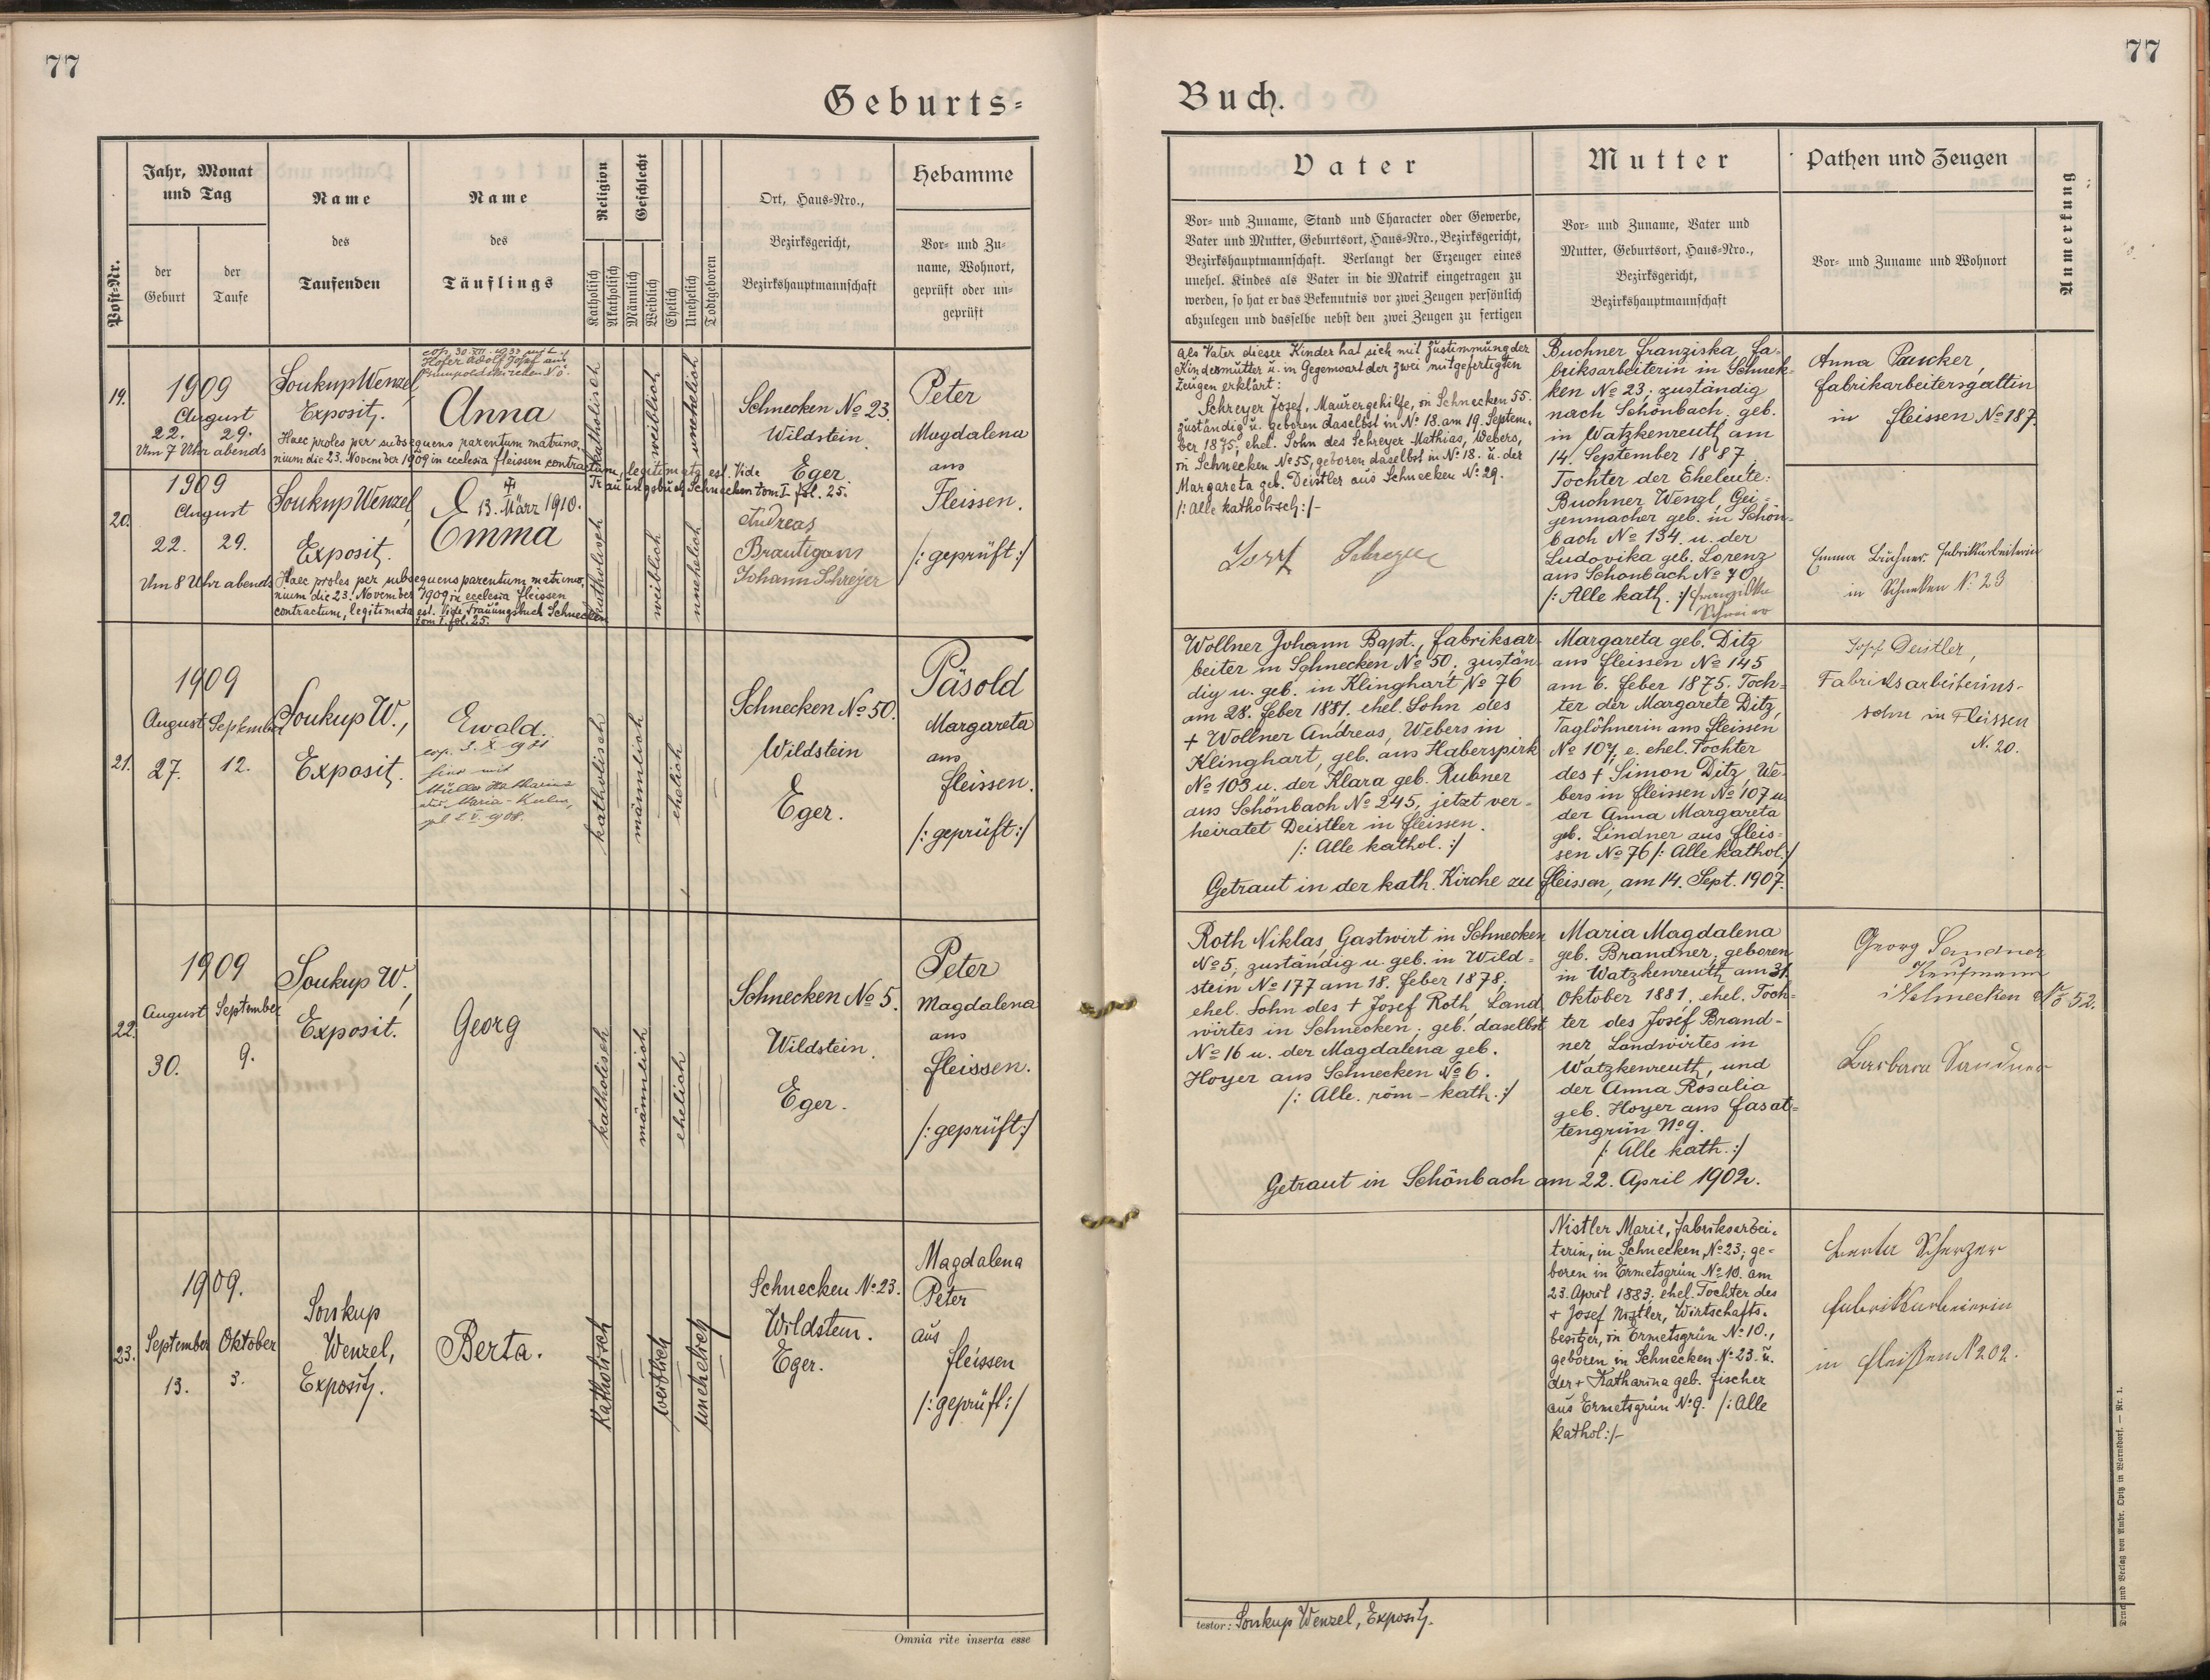 77
Geburts=
Post-Nr.
Jahr, Monat
und Tag
der
Geburt
der
Taufe
Name
des
Taufenden
Name
des
Täuflings
Religion
Katholisch
Akatholisch
Geschlecht
Männlich
Weiblich
Ehelich
Unehelich
Todtgeboren
Ort, Haus-Nro.,
Bezirksgericht,
Bezirkshauptmannschaft
Hebamme
Vor- und Zu-
name, Wohnort,
geprüft oder un-
geprüft
19.
1909
August
22. 29.
Um 7 Uhr abends
Soukup Wenzel,
Exposit.
cop. 30. XII. 1933 mit
Hofer Adolf Josef aus
Gumpoldskirchen N.Ö.
Anna
Haec proles per subsequens parentum matrimo,
nium die 23. November 1909 in ecclesia fleissen contractum, legitimata est. Vide
Trauungsbuch Schnecken tom I. fol. 25.
katholisch
weiblich
unehelich
Schnecken No 23.
Wildstein
Eger.
Peter
Magdalena
aus
Fleissen.
/: geprüft :/
20.
1909
August
22. 29.
Um 8 Uhr abends
Soukup Wenzel,
Exposit.
13. März 1910.
Emma
Haec proles per subsequens parentum matrimo,
nium die 23. November 1909 in ecclesia fleissen
contractum, legitimata est. Vide Trauungsbuch Schnecken
tom I. fol. 25.
katholisch
weiblich
unehelich
Andreas
Brautigam
Johann Schreyer
21.
1909
August September
27. 12.
Soukup W.,
Exposit.
Ewald.
cop. 3. X. 1931
hier mit
Müller Katharina
aus Maria-Kulm,
katholisch
männlich
ehelich
Schnecken No 50.
Wildstein
Eger.
Päsold
Margareta
aus
fleissen.
/: geprüft :/
22.
1909
August September
30. 9.
Soukup W.,
Exposit.
Georg
katholisch
männlich
ehelich
Schnecken No 5.
Wildstein.
Eger.
Peter
Magdalena
aus
fleissen.
/: geprüft :/
23.
1909.
September Oktober
13. 3.
Soukup
Wenzel,
Exposit.
Berta.
Katholisch
weiblich
unehelich
Schnecken No 23.
Wildstein.
Eger.
Magdalena
Peter
aus
fleissen
/: geprüft :/
Omnia rite inserta esse
77
Buch.
Vater
Vor- und Zuname, Stand und Character oder Gewerbe,
Vater und Mutter, Geburtsort, Haus-Nro., Bezirksgericht,
Bezirkshauptmannschaft. Verlangt der Erzeuger eines
unehel. Kindes als Vater in die Matrik eingetragen zu
werden, so hat er das Bekenntnis vor zwei Zeugen persönlich
abzulegen und dasselbe nebst den zwei Zeugen zu fertigen
Mutter
Vor- und Zuname, Vater und
Mutter, Geburtsort, Haus-Nro.,
Bezirksgericht,
Bezirkshauptmannschaft
Pathen und Zeugen
Vor- und Zuname und Wohnort
Anmerkung
Als Vater dieser Kinder hat sich mit Zustimmung der
Kindesmutter u. in Gegenwart der zwei mitgefertigten
Zeugen erklärt:
Schreyer Josef, Maurergehilfe, in Schnecken 55.
zuständig u. geboren daselbst in No 18. am 19. Septem-
ber 1875; ehel. Sohn des Schreyer Mathias, Webers,
in Schnecken No 55, geboren daselbst in No 18. u. der
Margareta geb. Deistler aus Schnecken No 29.
/: Alle katholisch :/-
Josef Schreyer
Buchner Franziska, Fa-
briksarbeiterin in Schnek-
ken No 23; zuständig
nach Schönbach; geb.
in Watzkenreuth am
14. September 1887,
Tochter der Eheleute:
Buchner Wenzl, Gei-
genmacher geb. in Schön-
bach No 134 u. der
Ludovika geb. Lorenz
aus Schönbach No 70
/: Alle kath. :/ Franziska
Schreier
Anna Paucker,
Fabrikarbeitersgattin
in fleissen No 187.
Emma Buchner Fabrikarbeiterin
in Schnecken N. 23
Wollner Johann Bapt., Fabriksar-
beiter in Schnecken No 50, zustän-
dig u. geb. in Klinghart No 76
am 28. feber 1881. ehel. Sohn des
+ Wollner Andreas, Webers in
Klinghart, geb. aus Haberspirk
No 103 u. der Klara geb. Rubner
aus Schönbach No 245, jetzt ver-
heiratet Deistler in fleissen.
/: Alle kathol. :/
Margareta geb. Ditz
aus fleissen No 145
am 6. feber 1875. Toch-
ter der Margarete Ditz,
Taglöhnerin aus fleissen
No 107, e. ehel. Tochter
des + Simon Ditz, We-
bers in fleissen No 107 u.
der Anna Margareta
geb. Lindner aus fleis-
sen No 76 /: Alle kathol. :/
Getraut in der kath. Kirche zu fleissen, am 14. Sept. 1907.
Josef Deistler,
Fabriksarbeiterins-
sohn in Fleissen
N. 20.
Roth Niklas, Gastwirt in Schnecken
No 5, zuständig u. geb. in Wild-
stein No 177 am 18. feber 1878;
ehel. Sohn des + Josef Roth, Land
wirtes in Schnecken; geb. daselbst
No 16 u. der Magdalena geb.
Hoyer aus Schnecken No 6.
/: Alle. röm-kath. :/
Maria Magdalena
geb. Brandner; geboren
in Watzkenreuth am 31.
Oktober 1881. ehel. Toch-
ter des Josef Brand-
ner Landwirtes in
Watzkenreuth, und
der Anna Rosalia
geb. Hoyer aus Fasat-
tengrün No 9.
/: Alle kath. :/
Getraut in Schönbach am 22. April 1902.
Georg Sandner
Kaufmann
i Schnecken No 52.
Barbara Sandner
Nistler Marie, Fabriksarbei-
terin, in Schnecken, No 23; ge-
boren in Ermetsgrün No 10. am
23. April 1883; ehel. Tochter des
+ Josef Nistler, Wirtschafts-
besitzer, in Ermetsgrün No 10.,
geboren in Schnecken No 23. u.
der + Katharina geb. Fischer
aus Ermetsgrün No 9. /: Alle
kathol :/-
Berta Scherzer
Fabrikarbeiterin
in Fleißen N 202.
testor: Soukup Wenzel, Exposit.
Druck und Verlag von Ambr. Opitz in Warnsdorf. — Nr. 1.